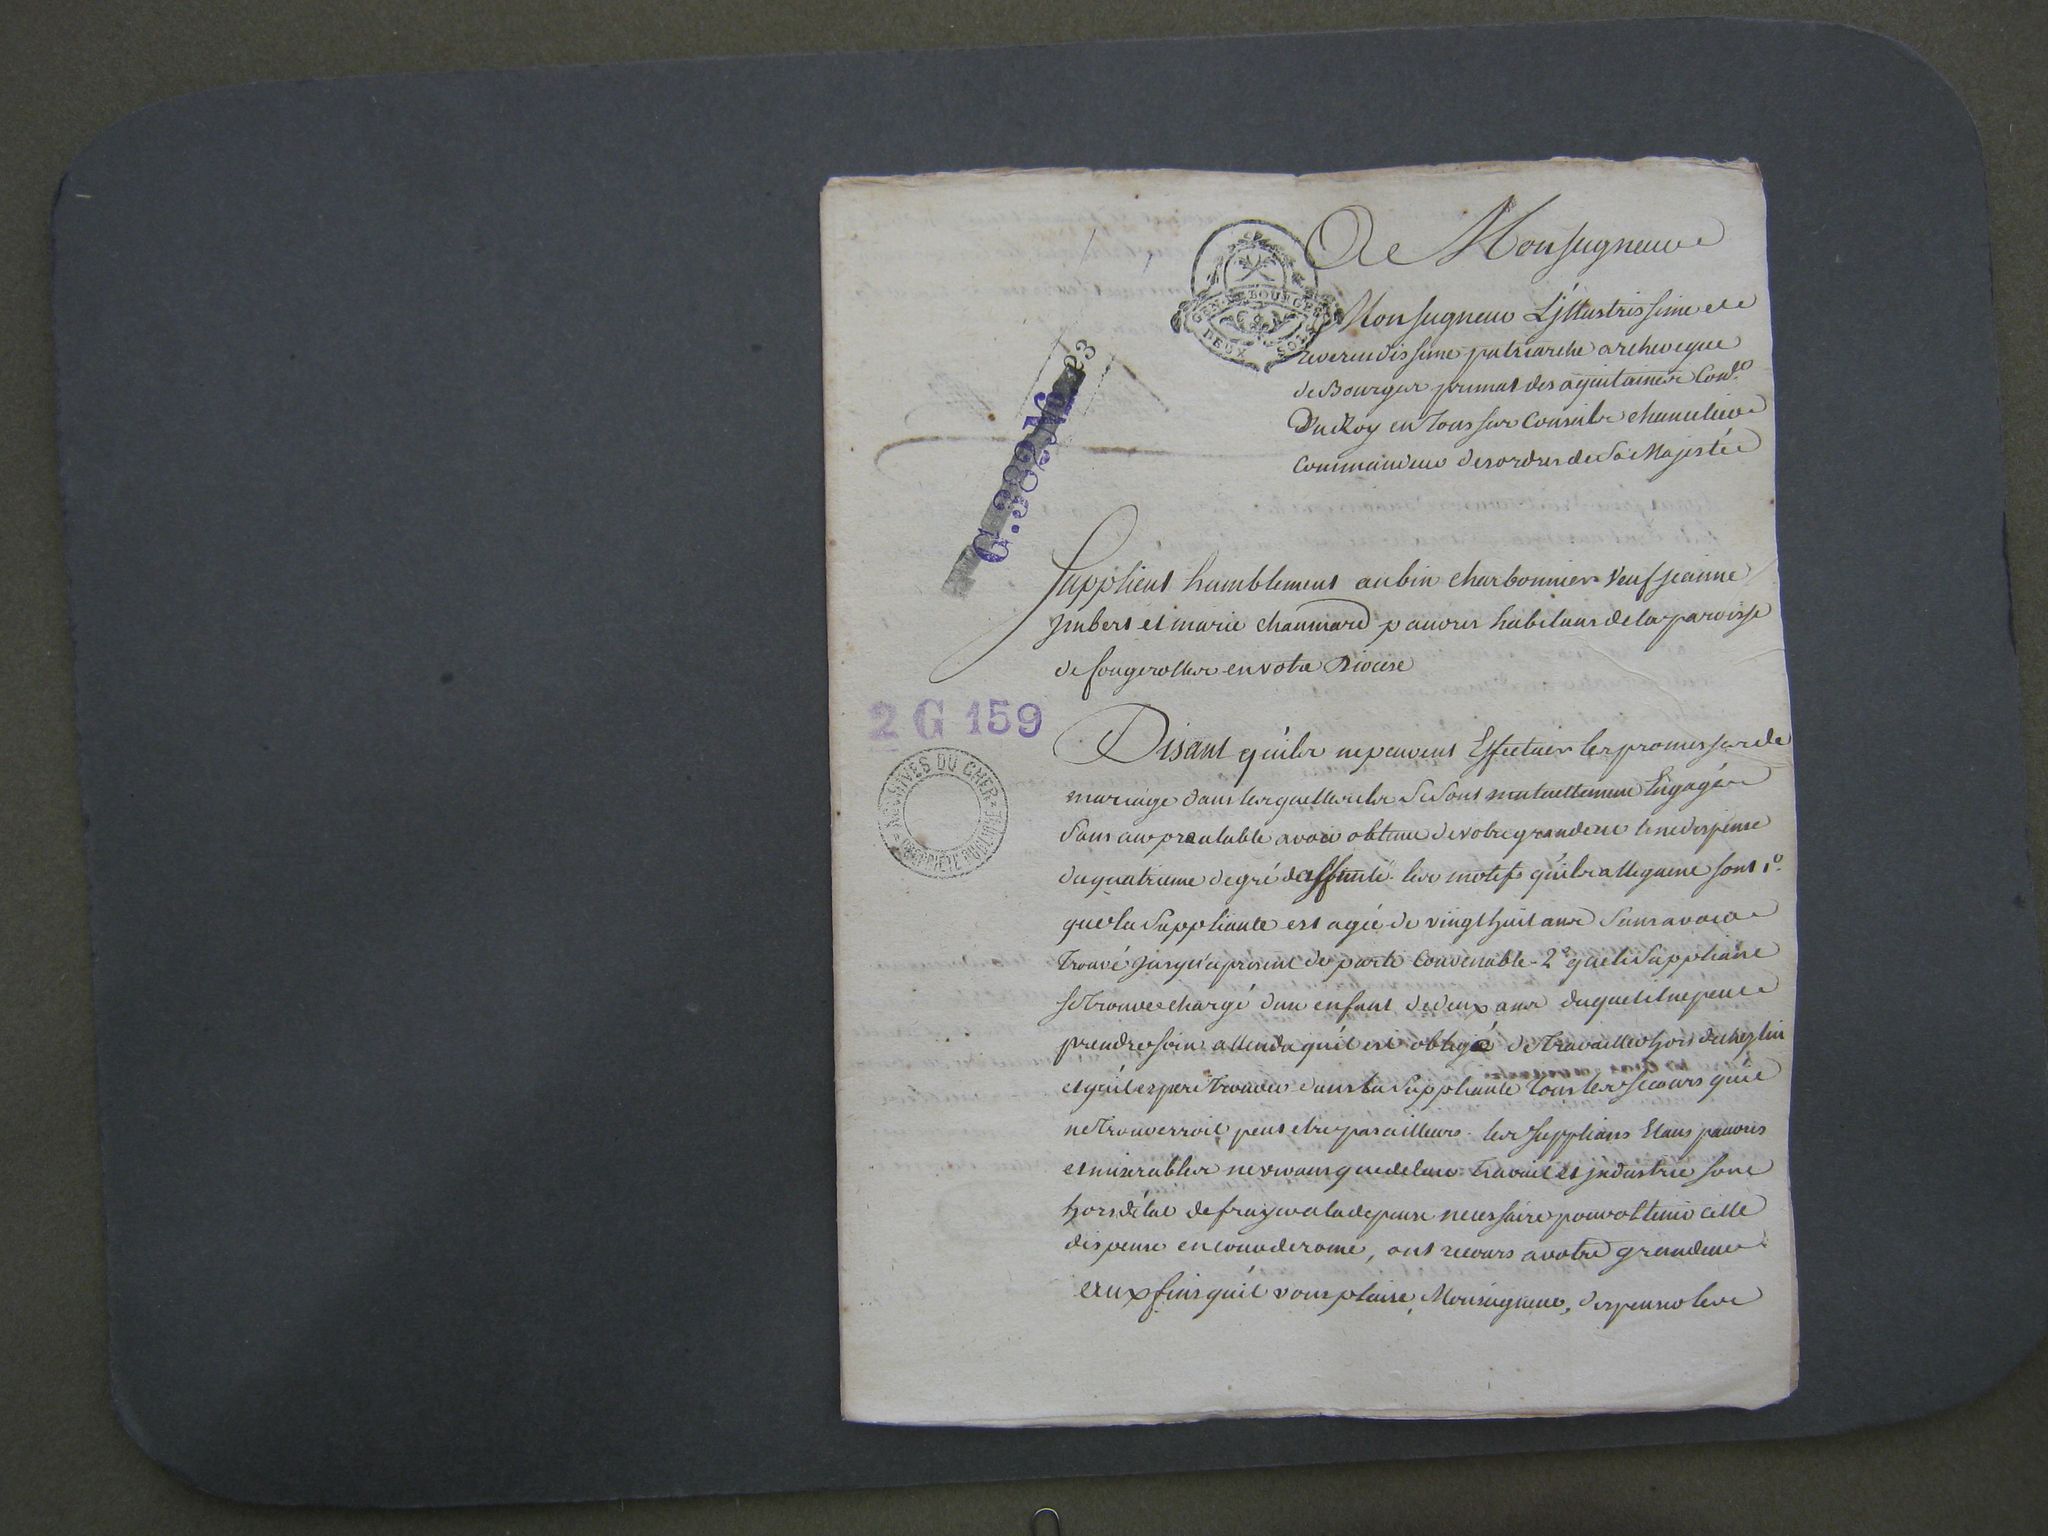 A Monseigneur
GEN. DE BOURGES
DEUX SOLS
Monseigneur L'jllustrissime et
reverendissime patriarche archeveque
de Bourges primat des aquitaines Con.er
Du Roy en tous ses Conseils chancelier
Commandeur des ordres de Sa Majesté
C.382 No 23
Supplient humblement aubin charbonnier veuf jeanne
jmbert et marie chaumard pauvres habitans de la paroisse
de fougerolles en votre Diocese
2 G 159
ARCHIVES DU CHER
PROPRIÉTÉ PUBLIQUE
Disant qu'ils ne peuvent Effectuer les promesses de
mariage dans lesquelles ils se sont mutuellement Engagés
sans au prealable avoir obtenu de votre grandeur une dispense
du quatrieme degré d'affinité. les motifs qu'ils alleguent sont 1.o
que la Suppliante est agée de vingt huit ans sans avoir
trouvé jusqu'a present de parti Convenable. 2.o que le Suppliant
se trouve chargé d'un enfant de deux ans duquel il ne peut
prendre soin attendu qu'il est obligé de travailler hors de chez lui
et qu'il espere trouver dans la Suppliante tous les secours qu'il
ne trouverroit peut etre pas ailleurs. les supplians Etans pauvres
et miserables ne vivans que de leur travail et jndustrie sont
hors d'état de frayer a la depense necessaire pour obtenir cette
dispense en cour de rome, ont recours a votre grandeur
aux fins qu'il vous plaise, Monseigneur, dispenser les